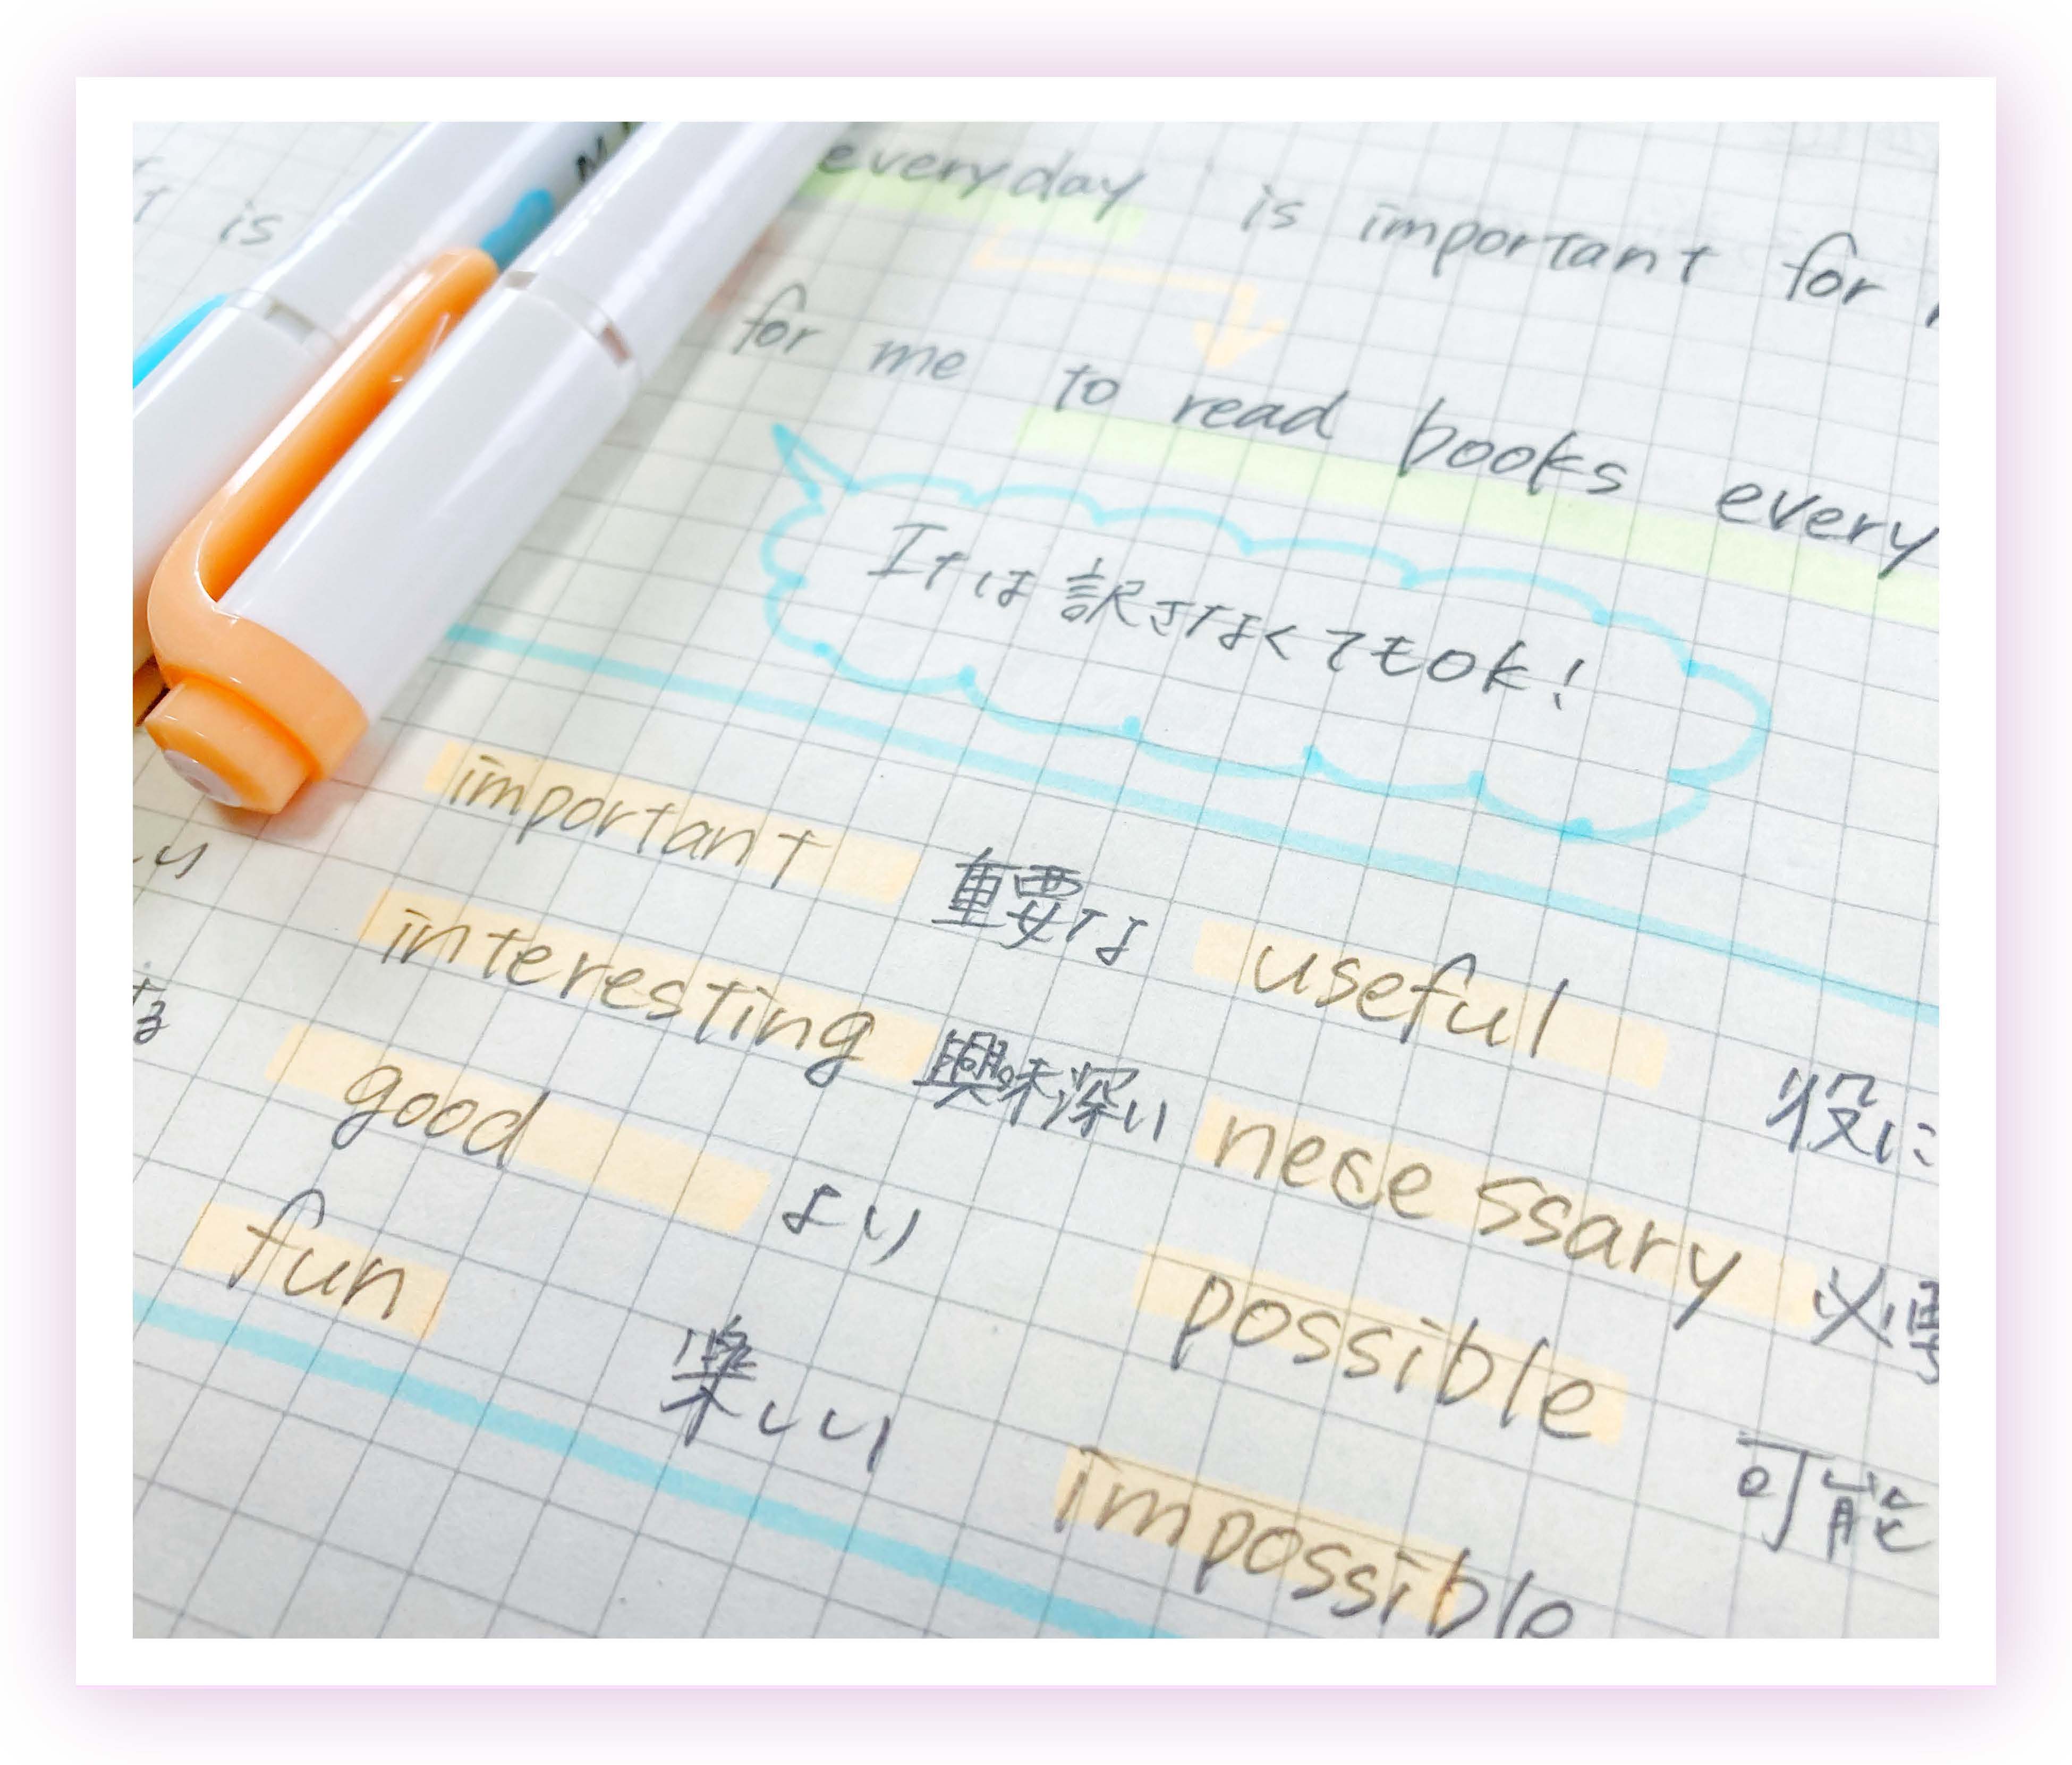 everyday is important for
is
for me to read books every
Itは訳さなくてもOK!
important 重要な useful 役に
interesting 興味深い necessary 必要
good より possible 可能
fun 楽しい impossible